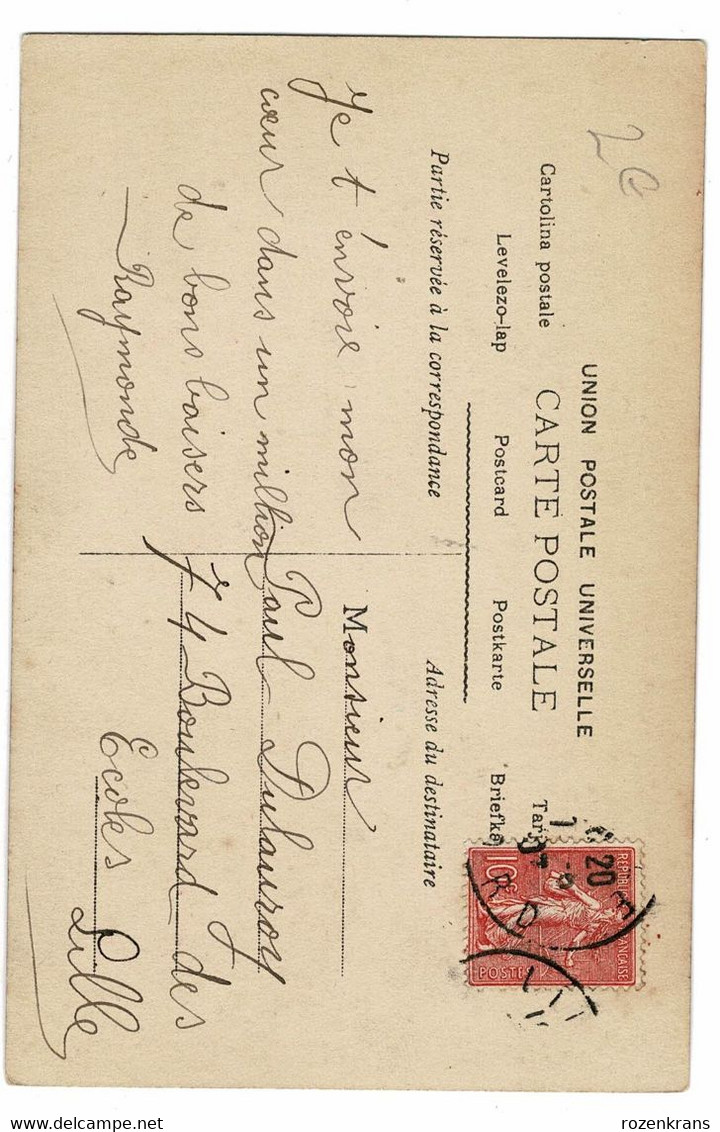 UNION POSTALE UNIVERSELLE
Cartolina postale CARTE POSTALE
Levelezo-lap Postcard Postkarte
Partie réservée à la correspondance
Adresse du destinataire
Je t'envoie mon
cœur dans un million
de bons baisers
Raymonde
Monsieur
Paul Dulauroy
74 Boulevard des
Ecoles
Lille
20
10c
POSTES
2€
delcampe.net
rozenkrans